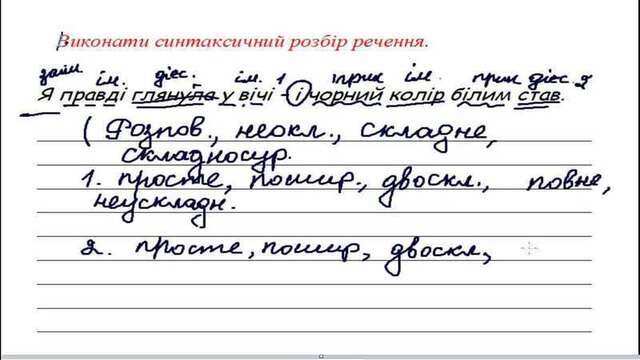 Виконати синтаксичний розбір речення.
займ ім. дієс. ім. 1 прик ім. прик дієс. 2
Я правді глянула у вічі - і чорний колір білим став.
(Розпов., неокл., складне,
складносур.
1. просте, пошир., двоскл., повне,
неускладн.
2. просте, пошир, двоскл,